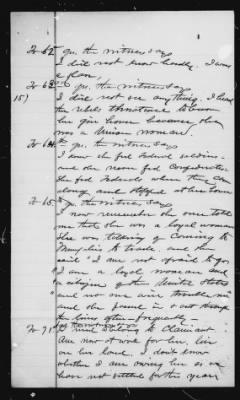 To 62nd qu. the witness says
I did not know hardly. I was
a slave.
To 63rd qu. the witness says
15) I did not see anything. I heard
the rebels threatened to burn
her gin house because she
was a Union woman.
To 64th qu. the witness says
I know she fed Federal soldiers
and she never fed Confederates
She fed Federals when they came
along and stopped at her house
To 65th qu. the witness says
I now remember she once told
me that she was a loyal woman
She was talking of coming to
Memphis to trade, and she
said "I am not afraid to go,
I am a loyal woman and
a citizen of the United States
and no one will trouble me"
and she passed in and through
the lines often frequently.
To 71st I
belong to Claimant
Am now at work for her, live
on her land. I don't know
whether I am owing her as we
have not settled for this year